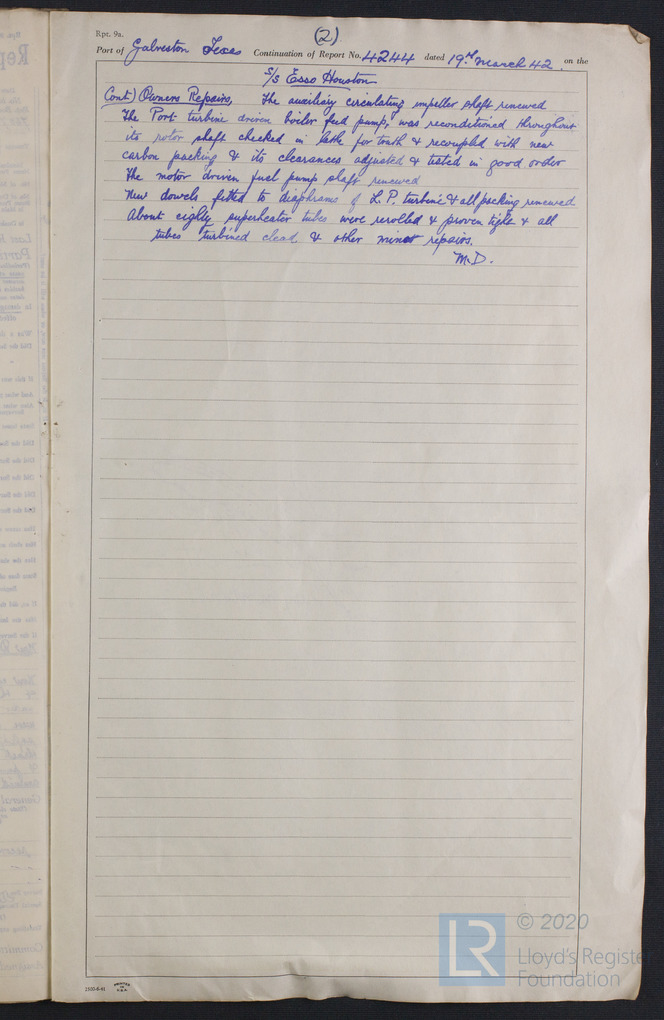 (2)
Rpt. 9a.
Port of Galveston Texas Continuation of Report No. 4244 dated 19th March 42. on the
S/S Esso Houston
(Cont) Owners Repairs, The auxiliary circulating impeller shaft renewed
The Port turbine driven boiler feed pump, was reconditioned throughout
its rotor shaft checked in lathe for truth & recoupled with new
carbon packing & its clearances adjusted & tested in good order
The motor driven fuel pump shaft renewed
New dowels fitted to diaphrams of L.P. turbine & all packing renewed
About eighty superheater tubes were rerolled & proven tight & all
tubes turbined clead & other minor repairs.
M.D.
2500-6-41
PRINTED
IN
U.S.A.
© 2020
LR
Lloyd's Register
Foundation